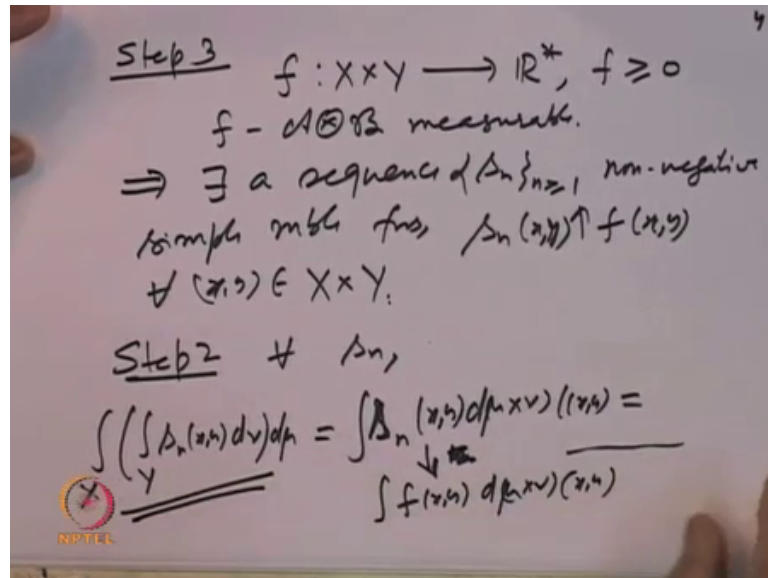 4
Step 3 f : X×Y ⟶ ℝ*, f ≥ 0
f - 𝒜⊗ℬ measurable.
⟹ ∃ a sequence {sₙ}ₙ≥₁ non-negative
simple mble fns, sₙ(x,y)↑ f(x,y)
∀ (x,y) ∈ X×Y.
Step 2 ∀ sₙ,
∫_X (∫_Y sₙ(x,y) dν)dμ = ∫ sₙ (x,y) dμ×ν)((x,y) =
↓
∫ f(x,y) dμ×ν)(x,y)
NPTEL